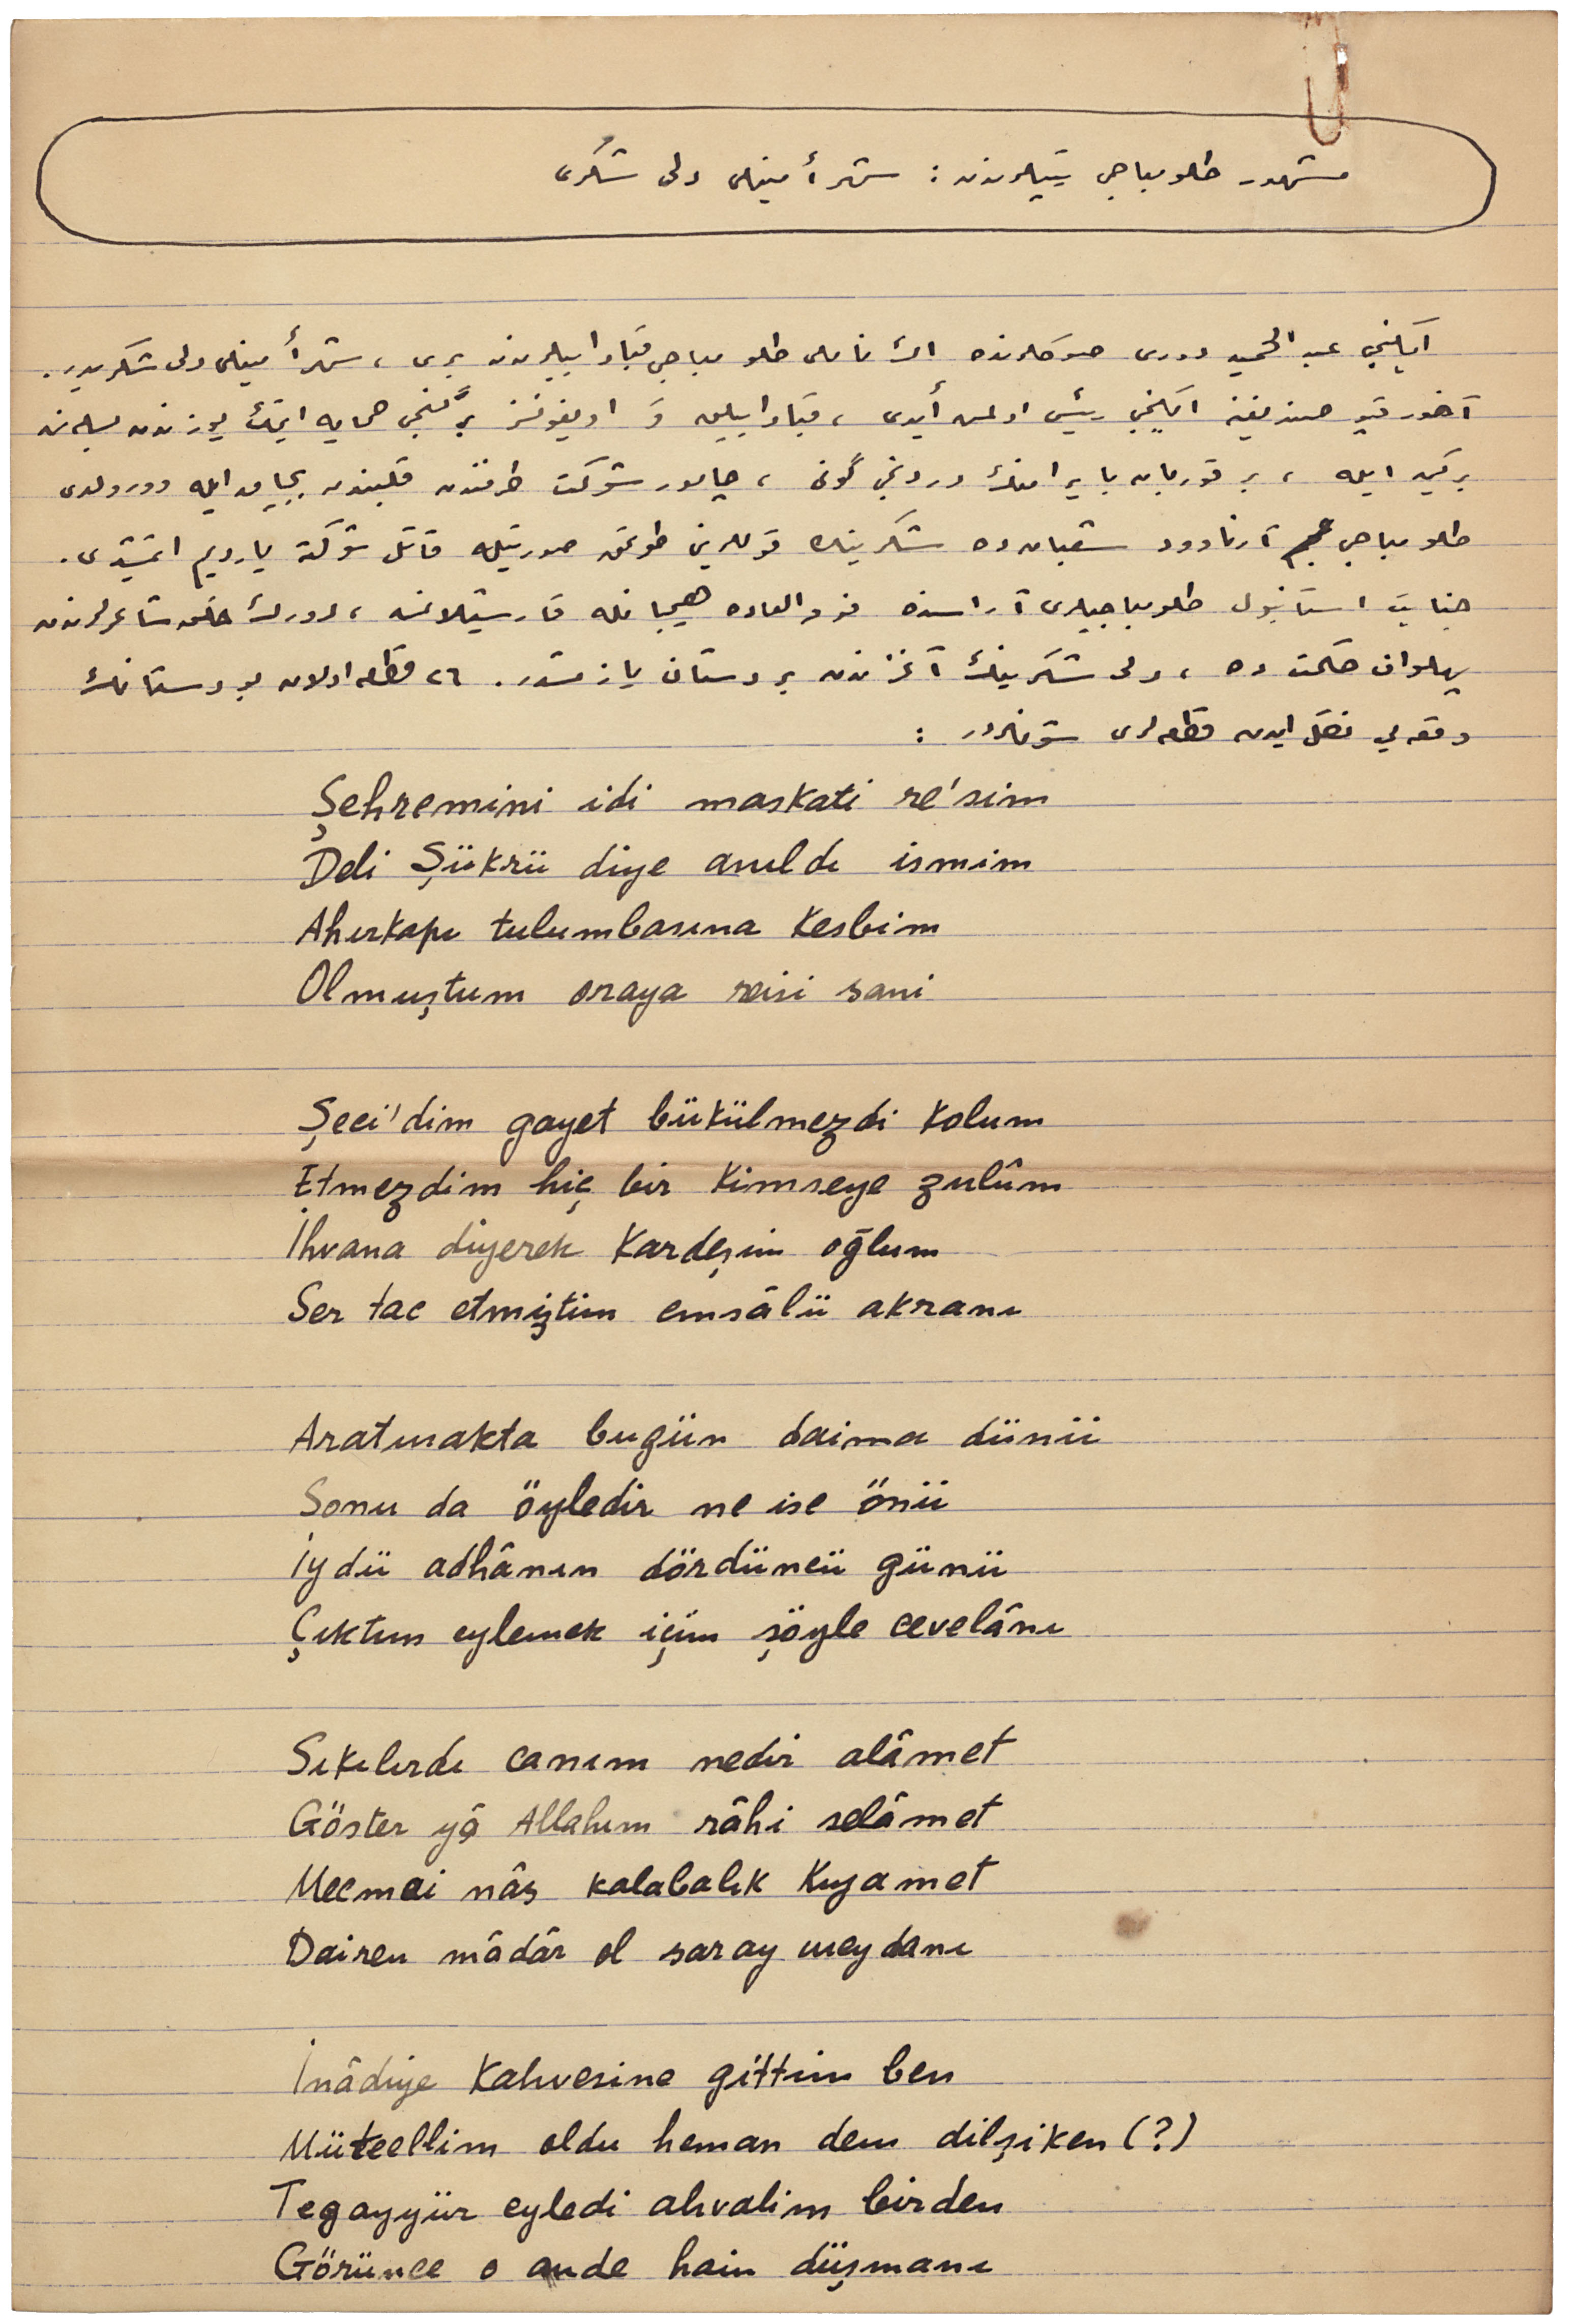 مشهور طلومباجی تیپلرندن : شهر أمینلی دلی شکری
ایکنجی عبد الحمید دوری صوکلرنده اڭ ناملی طلومباجی قباداییلرندن بری ، شهر أمینلی دلی شکریدر .
آخور قپو صندیغنه ایکنجی رئیس اولمش أیدی ، قباداییلق و اویغونسز بر گنجی حمایه ایتمك یوزندن
بر کین ایله ، بر قوربان بایرامنڭ دردنجی گونی ، چامور شوکت طرفندن قلبندن بچاق ایله وورولدی
طلومباجی آرناوود شعبان ده شکرینڭ قوللرینی طوتمق صورتیله قاتل شوکته یاردیم ایتمشدی .
جنایت استانبول طلومباجیلری آراسنده فوق العاده هیجانله قارشیلانمش ، دورڭ خلق شاعرلرندن
پهلوان حکمت ده ، دلی شکرینڭ آغزندن بر دستان یازمشدر . ٢٦ قطعه اولان بو دستانڭ
وقعه یی نقل ایدن قطعه لری شونلردر :
Şehremini idi maskati re'sim
Deli Şükrü diye anıldı ismim
Ahırkapı tulumbasına Kesbim
Olmuştum oraya reisi sani
Şeci'dim gayet bükülmezdi kolum
Etmezdim hiç bir kimseye zulûm
İhvana diyerek Kardeşim oğlum
Ser tac etmiştim emsâlü akranı
Aratmakta bugün daima dünü
Sonu da öyledir ne ise önü
İydü adhânın dördüncü günü
Çıktım eylemek için şöyle cevelânı
Sıkılırdı canım nedir alâmet
Göster yâ Allahım râhi selâmet
Mecmai nâs kalabalık Kıyamet
Dairen mâdâr ol saray meydanı
İnâdiye Kahvesine gittim ben
Müteellim oldu heman dem dilşiken (?)
Tegayyür eyledi ahvalim birden
Görünce o anda hain düşmanı